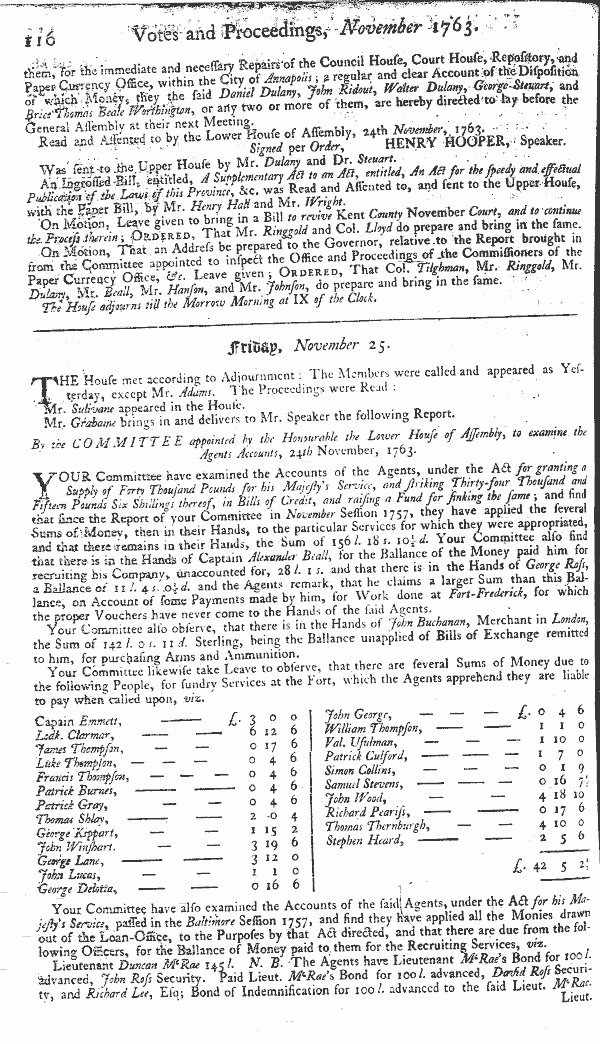 116 Votes and Proceedings, November 1763.
them, for the immediate and necessary Repairs of the Council House, Court House, Repository, and
Paper Currency Office, within the City of Annapolis; a regular and clear Account of the Disposition
of which Money, they the said Daniel Dulany, John Ridout, Walter Dulany, George Steuart, and
Brice Thomas Beale Worthington, or any two or more of them, are hereby directed to lay before the
General Assembly at their next Meeting.
Read and Assented to by the Lower House of Assembly, 24th November, 1763.
Signed per Order, HENRY HOOPER, Speaker.
Was sent to the Upper House by Mr. Dulany and Dr. Steuart.
An Ingrossed Bill, entitled, A Supplementary Act to an Act, entitled, An Act for the speedy and effectual
Publication of the Laws of this Province, &c. was Read and Assented to, and sent to the Upper House,
with the Paper Bill, by Mr. Henry Hall and Mr. Wright.
On Motion, Leave given to bring in a Bill to revive Kent County November Court, and to continue
the Process therein; ORDERED, That Mr. Ringgold and Col. Lloyd do prepare and bring in the same.
On Motion, That an Address be prepared to the Governor, relative to the Report brought in
from the Committee appointed to inspect the Office and Proceedings of the Commissioners of the
Paper Currency Office, &c. Leave given; ORDERED, That Col. Tilghman, Mr. Ringgold, Mr.
Dulany, Mr. Beall, Mr. Hanson, and Mr. Johnson, do prepare and bring in the same.
The House adjourns till the Morrow Morning at IX of the Clock.
Friday, November 25.
THE House met according to Adjournment: The Members were called and appeared as Yes-
terday, except Mr. Adams. The Proceedings were Read:
Mr. Sulivane appeared in the House.
Mr. Grahame brings in and delivers to Mr. Speaker the following Report.
By the COMMITTEE appointed by the Honourable the Lower House of Assembly, to examine the
Agents Accounts, 24th November, 1763.
YOUR Committee have examined the Accounts of the Agents, under the Act for granting a
Supply of Forty Thousand Pounds for his Majesty's Service, and striking Thirty-four Thousand and
Fifteen Pounds Six Shillings thereof, in Bills of Credit, and raising a Fund for sinking the same; and find
that since the Report of your Committee in November Session 1757, they have applied the several
Sums of Money, then in their Hands, to the particular Services for which they were appropriated,
and that there remains in their Hands, the Sum of 156 l. 18 s. 10½ d. Your Committee also find
that there is in the Hands of Captain Alexander Beall, for the Ballance of the Money paid him for
recruiting his Company, unaccounted for, 28 l. 1 s. and that there is in the Hands of George Ross,
a Ballance of 11 l. 4 s. 0½ d. and the Agents remark, that he claims a larger Sum than this Bal-
lance, on Account of some Payments made by him, for Work done at Fort-Frederick, for which
the proper Vouchers have never come to the Hands of the said Agents.
Your Committee also observe, that there is in the Hands of John Buchanan, Merchant in London,
the Sum of 142 l. 0 s. 11 d. Sterling, being the Ballance unapplied of Bills of Exchange remitted
to him, for purchasing Arms and Ammunition.
Your Committee likewise take Leave to observe, that there are several Sums of Money due to
the following People, for sundry Services at the Fort, which the Agents apprehend they are liable
to pay when called upon, viz.
Captain Emmett, £. 3 0 0
Leok. Clarmar, 6 12 6
James Thompson, 0 17 6
Luke Thompson, 0 4 6
Francis Thompson, 0 4 6
Patrick Burnes, 0 4 6
Patrick Gray, 0 4 6
Thomas Shlay, 2 0 4
George Kippart, 1 15 2
John Winshart. 3 19 6
George Lane, 3 12 0
John Lucas, 1 1 0
George Delotia, 0 16 6
John George, £. 0 4 6
William Thompson, 1 1 0
Val. Ufulman, 1 10 0
Patrick Culford, 1 7 0
Simon Collins, 0 1 9
Samuel Stevens, 0 16 7½
John Wood, 4 18 10
Richard Peariss, 0 17 6
Thomas Thornburgh, 4 10 0
Stephen Heard, 2 5 6
£. 42 5 2½
Your Committee have also examined the Accounts of the said Agents, under the Act for his Ma-
jesty's Service, passed in the Baltimore Session 1757, and find they have applied all the Monies drawn
out of the Loan-Office, to the Purposes by that Act directed, and that there are due from the fol-
lowing Officers, for the Ballance of Money paid to them for the Recruiting Services, viz.
Lieutenant Duncan McRae 145 l. N. B. The Agents have Lieutenant McRae's Bond for 100 l.
advanced, John Ross Security. Paid Lieut. McRae's Bond for 100 l. advanced, David Ross Securi-
ty, and Richard Lee, Esq; Bond of Indemnification for 100 l. advanced to the said Lieut. McRae.
Lieut.